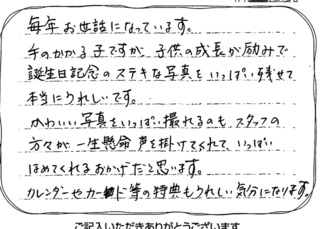 毎年お世話になっています。
手のかかる子ですが、子供の成長が励みで
誕生日記念のステキな写真をいっぱい残せて
本当にうれしいです。
かわいい写真をいっぱい撮れるのも、スタッフの
方々が一生懸命声を掛けてくれて、いっぱい
ほめてくれるおかげだと思います。
カレンダーやカード等の特典もうれしい気分になります。
ご記入いただきありがとうございます